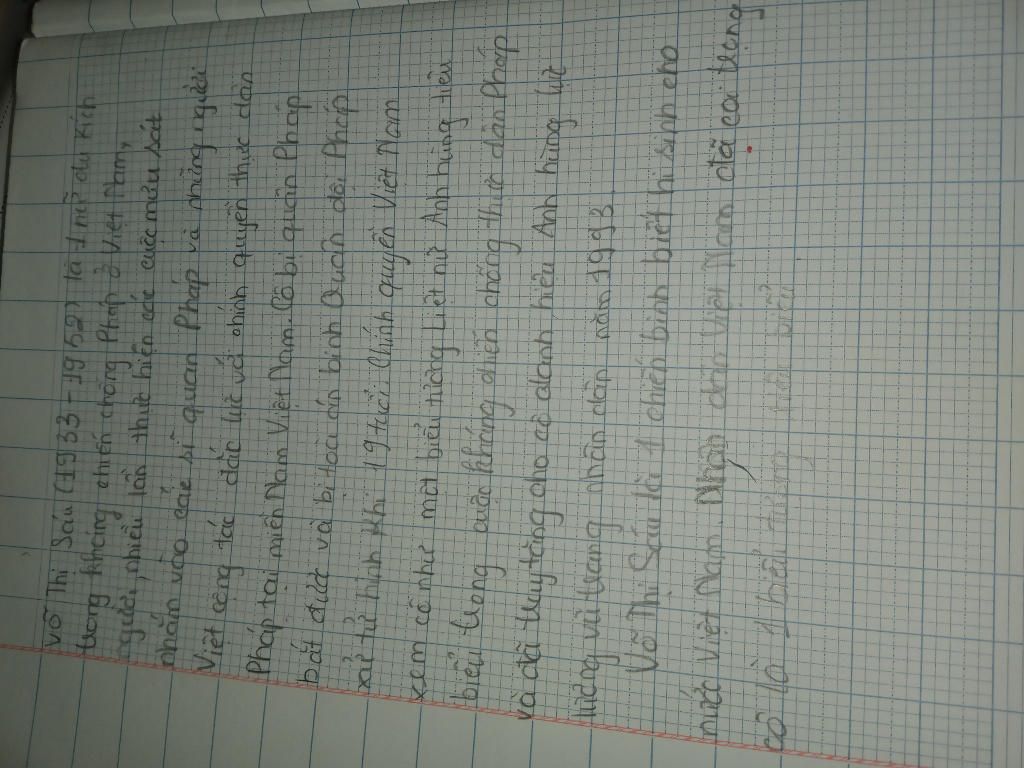 Võ Thị Sáu (1933-1952) là 1 nữ du kích
trong kháng chiến chống Pháp ở Việt Nam,
người, nhiều lần thực hiện các cuộc mưu sát
nhắm vào các sĩ quan Pháp và những người
Việt cộng tác đắc lực với chính quyền thực dân
Pháp tại miền Nam Việt Nam. Cô bị quân Pháp
bắt được và bị tòa án binh Quân đội Pháp
xử tử hình khi 19 tuổi. Chính quyền Việt Nam
xem cô như một biểu tượng Liệt nữ Anh hùng tiêu
biểu trong cuộc kháng chiến chống thực dân Pháp
và đã truy tặng cho cô danh hiệu Anh hùng lực
lượng vũ trang nhân dân năm 1993
Võ Thị Sáu là 1 chiến binh biết hi sinh cho
nước Việt Nam. Nhân dân Việt Nam đã ca tụng
cô là 1 biểu tượng tiêu biểu